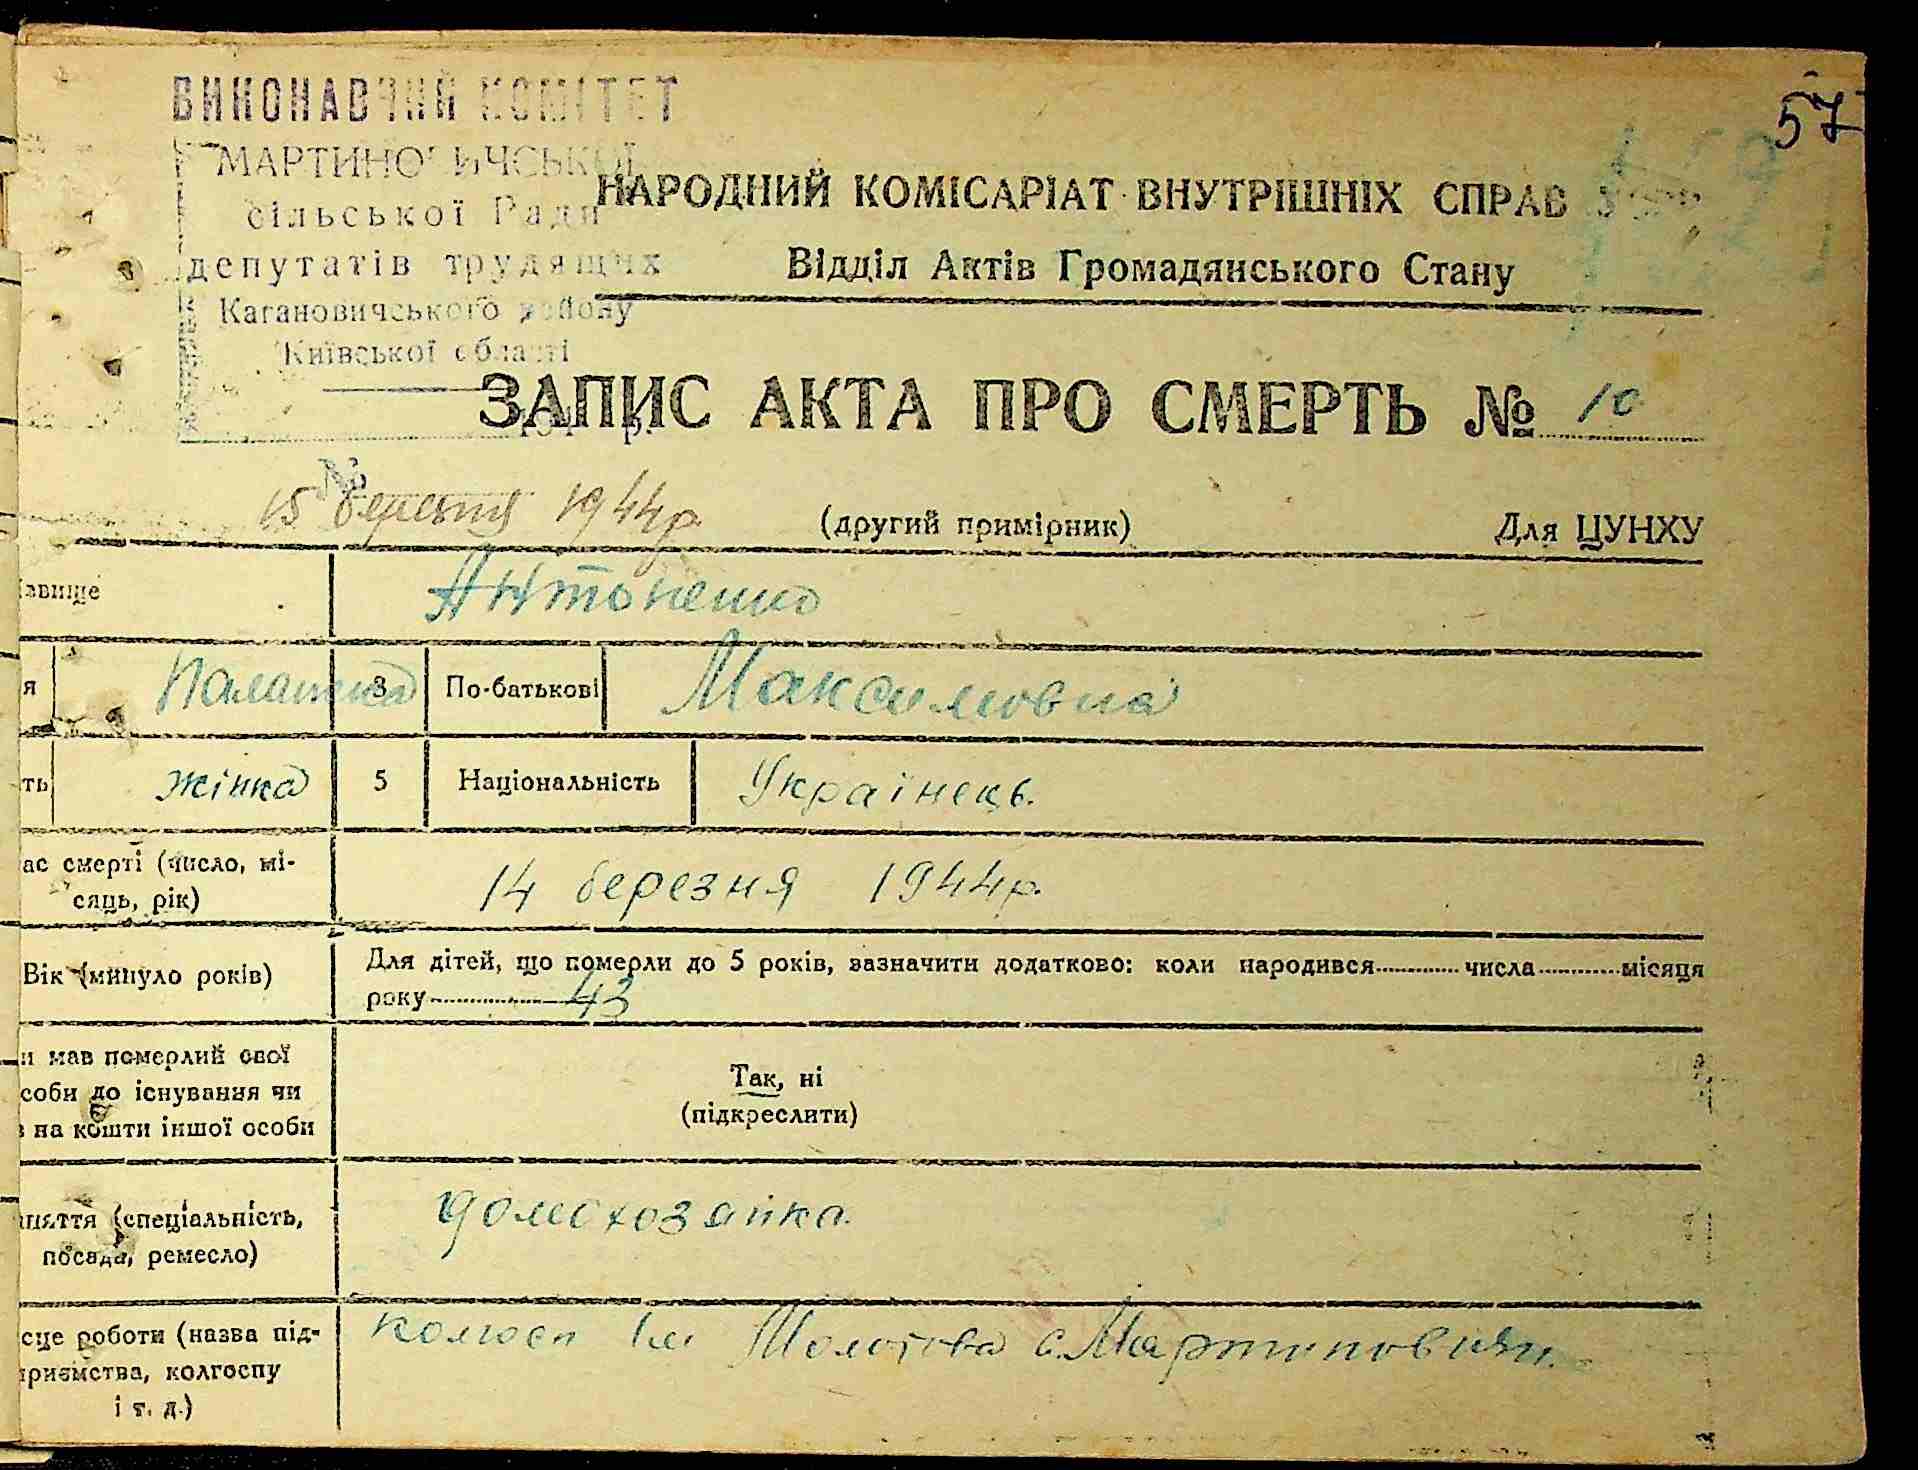 57
ВИКОНАВЧИЙ КОМІТЕТ
МАРТИНОВИЧСЬКОЇ
сільської Ради
депутатів трудящих
Кагановичського району
Київської області
НАРОДНИЙ КОМІСАРІАТ ВНУТРІШНІХ СПРАВ
Відділ Актів Громадянського Стану
ЗАПИС АКТА ПРО СМЕРТЬ № 10
№
15 березня 1944р.
(другий примірник) Для ЦУНХУ
звище Антоненко
я Палашка 3 По-батькові Максимовна
ть жінка 5 Національність Українець.
ас смерті (число, мі-
сяць, рік) 14 березня 1944р.
Вік (минуло років) Для дітей, що померли до 5 років, зазначити додатково: коли народився числа місяця
року 43
и мав померлий свої
соби до існування чи
на кошти іншої особи
Так, ні
(підкреслити)
няття (спеціальність,
посада, ремесло) домохозяйка.
сце роботи (назва під-
приємства, колгоспу
і т. д.)
колгосп ім Молотова с. Мартиновичі.